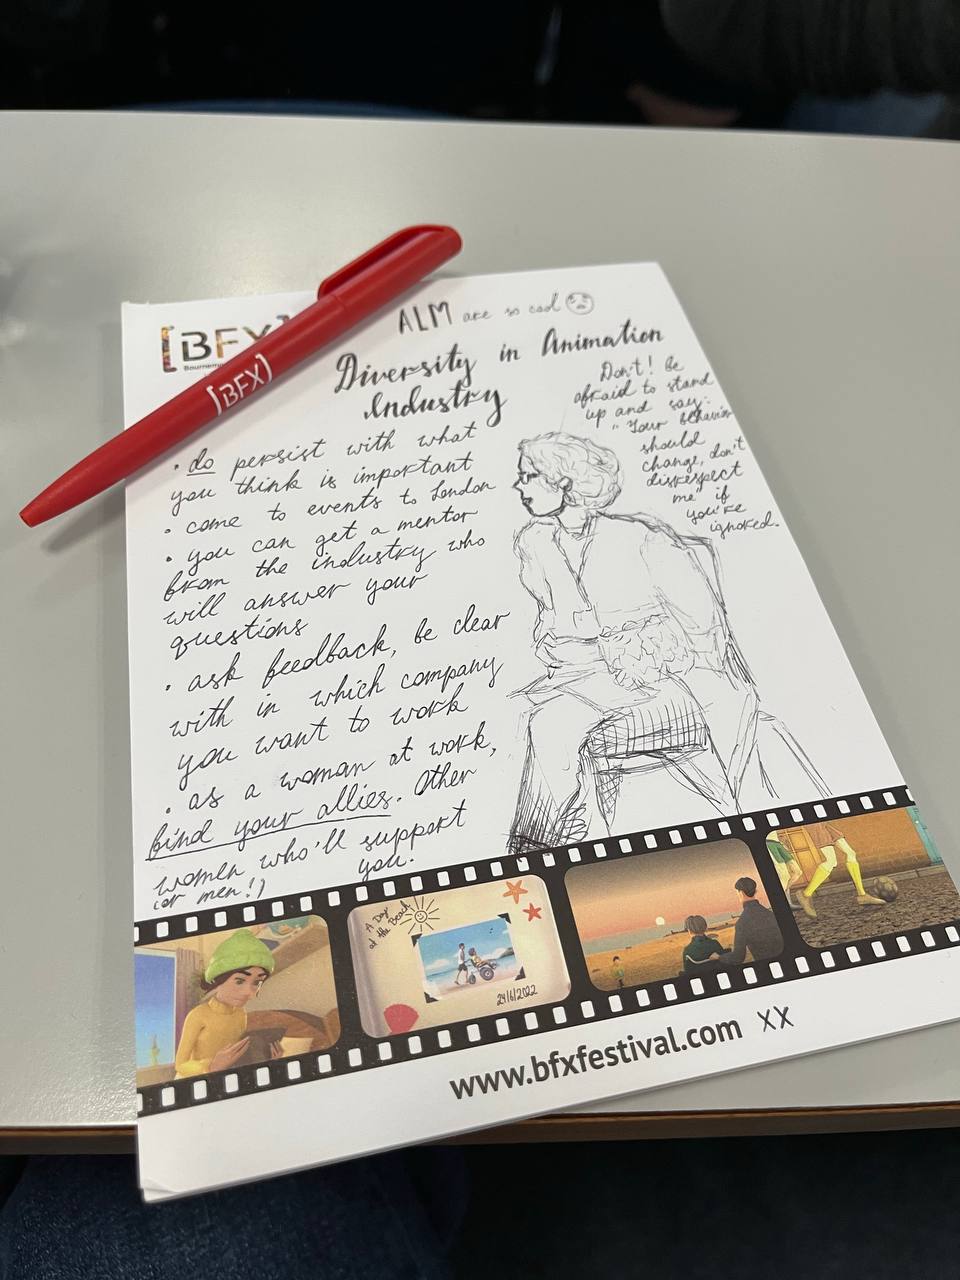 [BFX]
Bournem
[BFX]
ALM are so cool
Diversity in Animation
Industry
Don't! be
afraid to stand
up and say:
"Your behavior
should
change, don't
disrespect
me" if
you're
ignored.
• do persist with what
you think is important
• come to events to London
• you can get a mentor
from the industry who
will answer your
questions
• ask feedback, be clear
with in which company
you want to work
• as a woman at work,
find your allies. Other
women who'll support
(or men!) you.
A Day
at the Beach
24/6/2022
www.bfxfestival.com xx